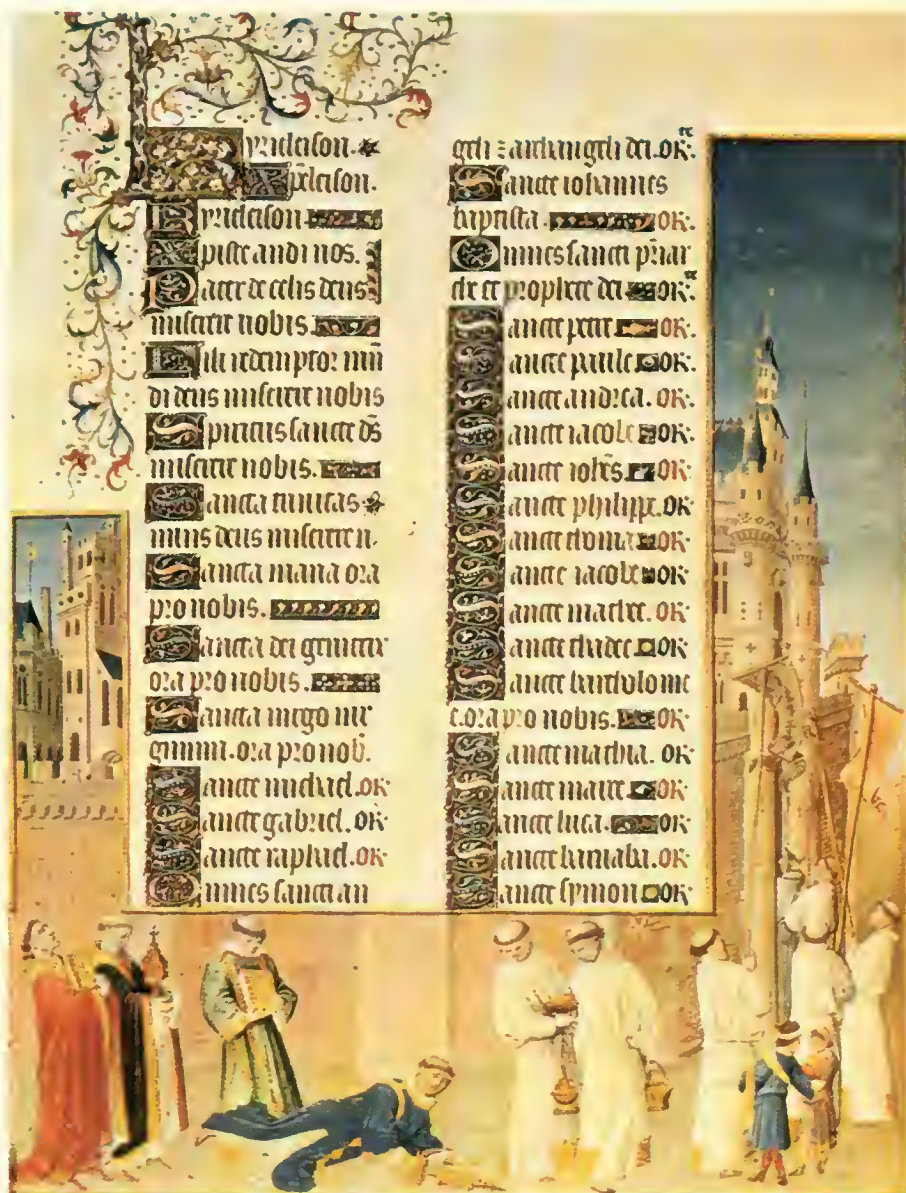 Kyrieleison.
Xpeleison.
Kyrieleison
Xpiste audi nos.
Pater de celis deus
miserere nobis.
Fili redemptor mun
di deus miserere nobis
Spiritus sancte ds
miserere nobis.
Sancta trinitas
unus deus miserere n.
Sancta maria ora
pro nobis.
Sancta dei genitrix
ora pro nobis.
Sancta virgo vir
ginum. ora pro nob.
Sancte michael. or
Sancte gabriel. or
Sancte raphael. or
Omnes sancti an
geli z archangeli dei. or.
Sancte iohannes
baptista. or.
Omnes sancti priar
che et prophete dei or.
Sancte petre or.
Sancte paule or.
Sancte andrea. or.
Sancte iacobe or.
Sancte iohes. or
Sancte philippe. or
Sancte thoma or
Sancte iacobe or
Sancte mathee. or
Sancte thadee or
Sancte bartholome
e. ora pro nobis. or
Sancte mathia. or
Sancte marce or
Sancte luca. or
Sancte barnaba. or
Sancte symon or